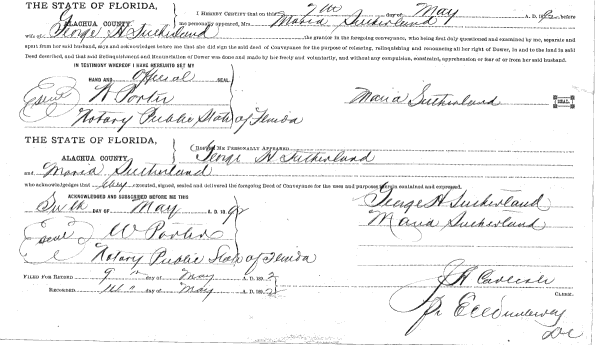 THE STATE OF FLORIDA,
ALACHUA COUNTY.
I HEREBY CERTIFY that on this 7th day of May A. D. 189 before
me personally appeared, Mrs Maria Sutherland
wife of George H Sutherland the grantor in the foregoing conveyance, who being first duly questioned and examined by me, separate and
apart from her said husband, says and acknowledges before me that she did sign the said deed of Conveyance for the purpose of releasing, relinquishing and renouncing all her right of Dower, in and to the land in said
Deed described, and that said Relinquishment and Renunciation of Dower was done and made by her freely and voluntarily, and without any compulsion, constraint, apprehension or fear of or from her said husband.
IN TESTIMONY WHEREOF I HAVE HEREUNTO SET MY
HAND AND Official SEAL
W Porter
Maria Sutherland SEAL
Notary Public State of Florida
THE STATE OF FLORIDA,
ALACHUA COUNTY.
BEFORE ME PERSONALLY APPEARED George H Sutherland
and Maria Sutherland
who acknowledges that they executed, signed, sealed and delivered the foregoing Deed of Conveyance for the uses and purposes therein contained and expressed.
ACKNOWLEDGED AND SUBSCRIBED BEFORE ME THIS
George H Sutherland
DAY OF May A. D. 1892
Maria Sutherland
W Porter
Notary Public State of Florida
FILED FOR RECORD 9 day of May A. D. 1892
RECORDED day of May A. D. 1892
CLERK.